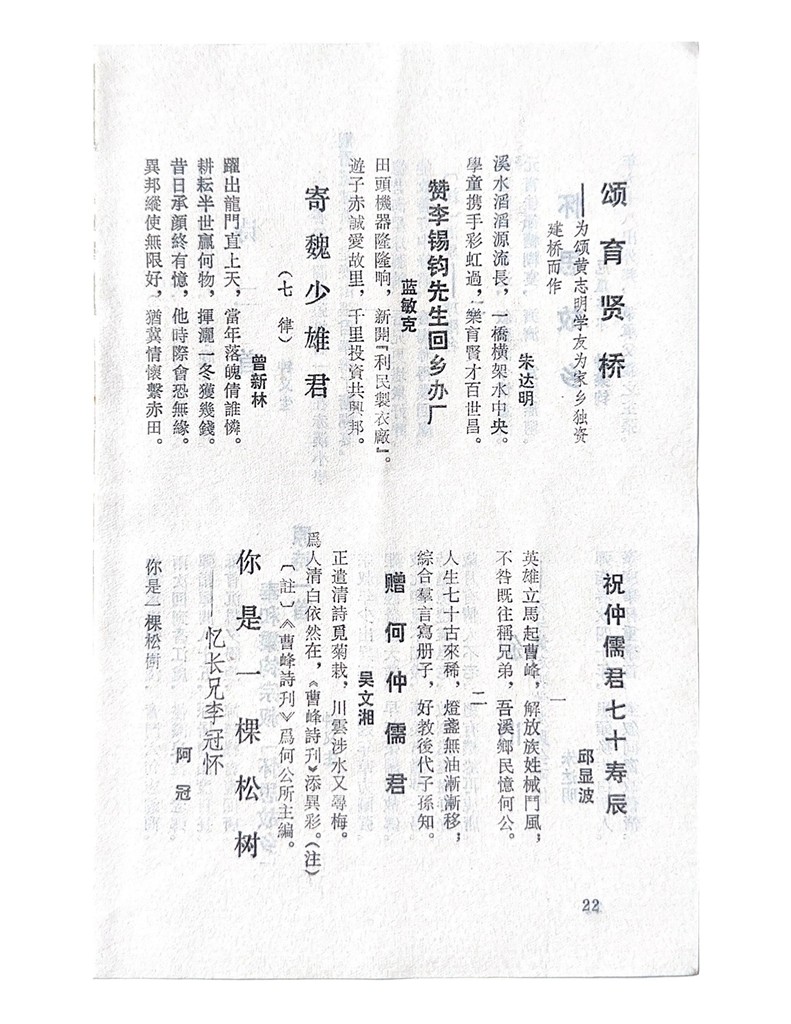 颂育贤桥
——为颂黄志明学友为家乡独资
建桥而作
朱达明
溪水滔滔源流長，一橋横架水中央。
學童携手彩虹過，樂育賢才百世昌。
赞李锡钧先生回乡办厂
蓝敏克
田頭機器隆隆响，新開『利民製衣廠』。
遊子赤誠愛故里，千里投資共興邦。
寄魏少雄君
（七律）
曾新林
躍出龍門直上天，當年落魄倩誰憐。
耕耘半世贏何物，揮灑一冬獲幾錢。
昔日承顔終有憶，他時際會恐無緣。
異邦縱使無限好，猶冀情懷繫赤田。
祝仲儒君七十寿辰
邱显波
一
英雄立馬起曹峰，解放族姓械鬥風，
不咎既往稱兄弟，吾溪鄉民憶何公。
二
人生七十古來稀，燈盞無油漸漸移；
綜合羣言寫册子，好教後代子孫知。
赠何仲儒君
吴文湘
正遣清詩覓菊栽，川雲涉水又尋梅。
爲人清白依然在，《曹峰詩刊》添異彩。（注）
〔註〕《曹峰詩刊》爲何公所主編。
你是一棵松树
——忆长兄李冠怀
阿冠
你是一棵松樹
22